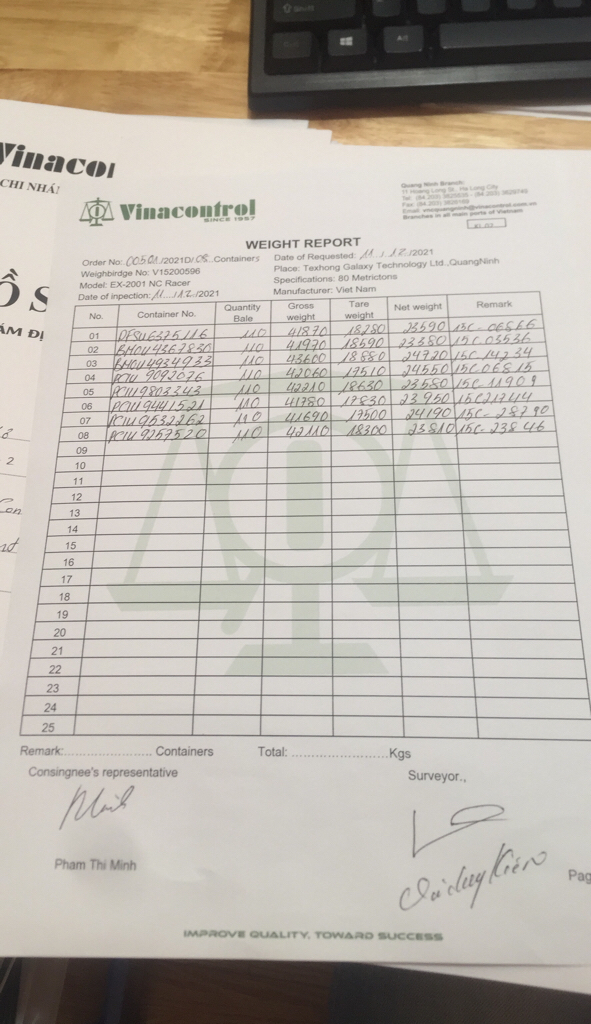 Vinacon
CHI NHÁ
Vinacontrol
SINCE 1957
Quang Ninh Branch:
11 Hoang Long St., Ha Long City
Branches in all main ports of Vietnam
WEIGHT REPORT
Order No: 00501/2021D/08 Containers Date of Requested: 11/12/2021
Weighbirdge No: V15200596 Place: Texhong Galaxy Technology Ltd.,QuangNinh
Model: EX-2001 NC Racer Specifications: 80 Metrictons
Date of inpection: 11/12/2021 Manufacturer: Viet Nam
No. Container No. Quantity Bale Gross weight Tare weight Net weight Remark
01 DFSU6375116 110 41870 18280 23590 15C-06866
02 BMOU4367830 110 41970 18590 23380 15C 03536
03 BMOU4934933 110 43600 18880 24720 15C-142.34
04 PCIU 9092076 110 42060 17510 24550 15C 06815
05 PCIU9803343 110 42210 18630 23580 15C-11909
06 PCIU9441521 110 41780 17830 23950 15C21744
07 PCIU9532262 110 41690 17500 24190 15C-28790
08 PCIU 9257520 110 42110 18300 23810 15C-23846
09
10
11
12
13
14
15
16
17
18
19
20
21
22
23
24
25
Remark:.................... Containers Total: ........................Kgs
Consingnee's representative Surveyor.,
Minh
Pham Thi Minh
Pag
IMPROVE QUALITY, TOWARD SUCCESS